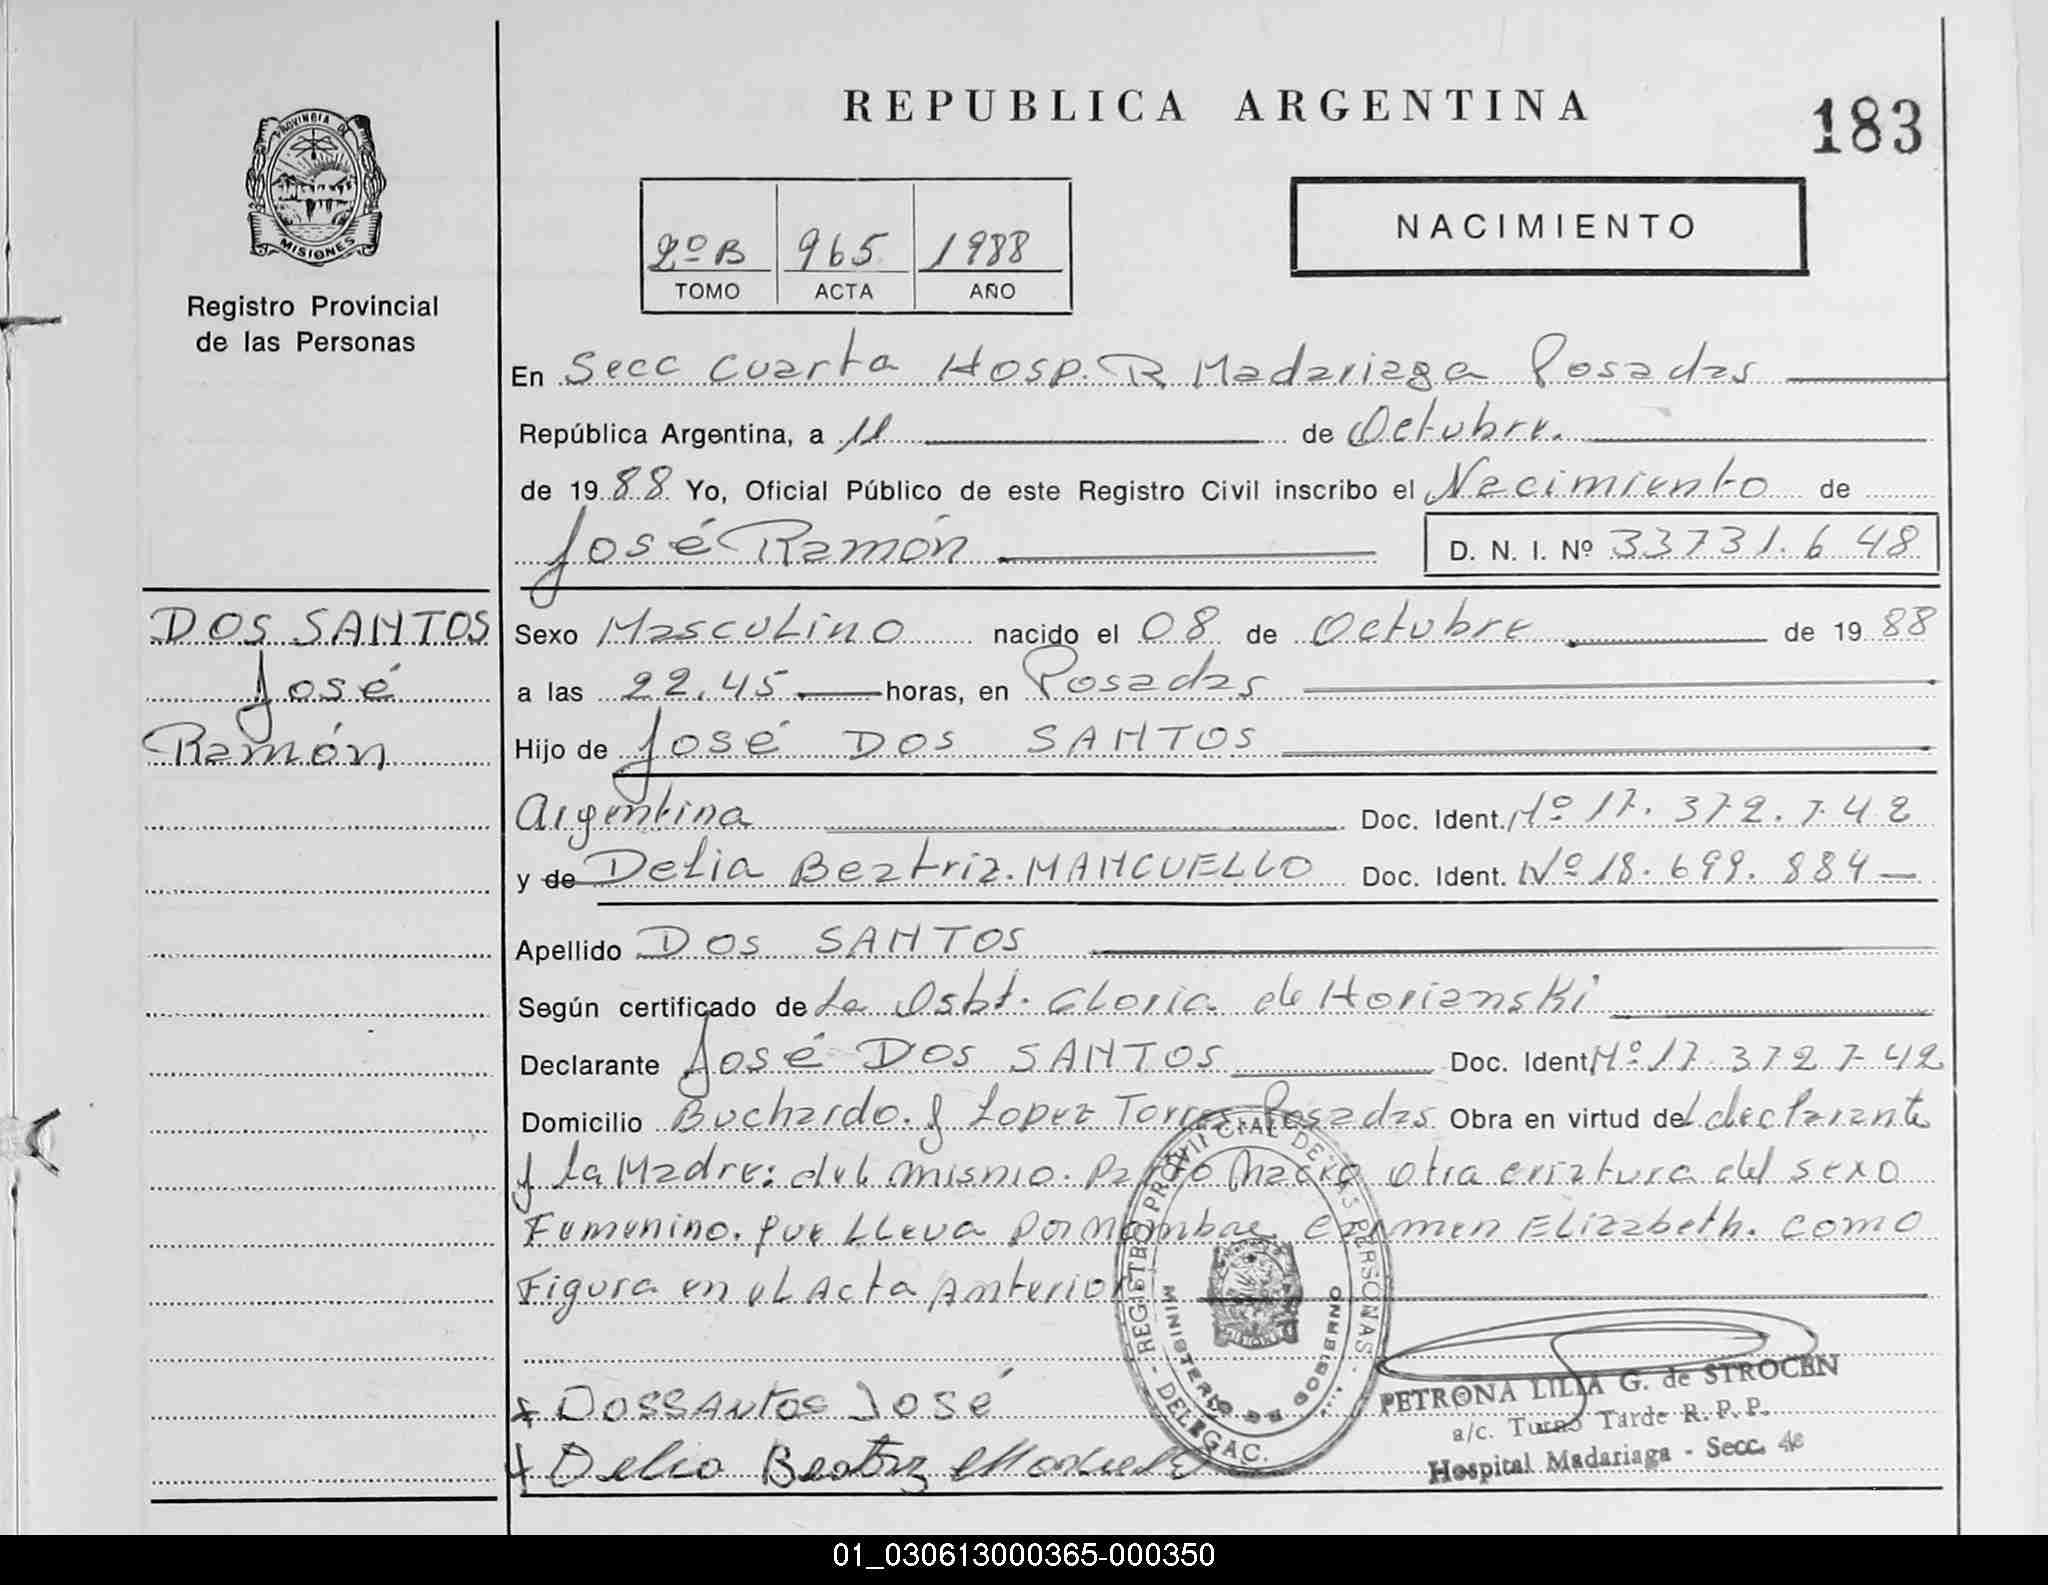 REPUBLICA ARGENTINA
183
PROVINCIA DE
MISIONES
Registro Provincial
de las Personas
2º B 965 1988
TOMO ACTA AÑO
NACIMIENTO
En Secc Cuarta Hosp. R Madariaga Posadas
República Argentina, a 11 de Octubre.
de 1988 Yo, Oficial Público de este Registro Civil inscribo el Nacimiento de
José Ramón D. N. I. Nº 33731.648
DOS SANTOS
José
Ramón
Sexo Masculino nacido el 08 de Octubre de 1988
a las 22.45 horas, en Posadas
Hijo de José DOS SANTOS
Argentina Doc. Ident. Nº 17.372.742
y de Delia Beatriz. MANCUELLO Doc. Ident. Nº 18.699.884
Apellido DOS SANTOS
Según certificado de La Osbt. Gloria de Horianski
Declarante José DOS SANTOS Doc. Ident. Nº 17.372742
Domicilio Buchardo. y Lopez Torres Posadas Obra en virtud del declarante
y la Madre: del mismo. Parto Nacio otra criatura del sexo
Femenino. que lleva por nombre Carmen Elizabeth. como
Figura en el Acta Anterior
REGISTRO PROVINCIAL DE LAS PERSONAS
MINISTERIO DE GOBIERNO
DELEGAC.
x DOSSANTOS José
x Delia Beatriz
PETRONA LILIA G. de STROCEN
a/c. Turno Tarde R. P. P.
Hospital Madariaga - Secc. 4ª
01_030613000365-000350